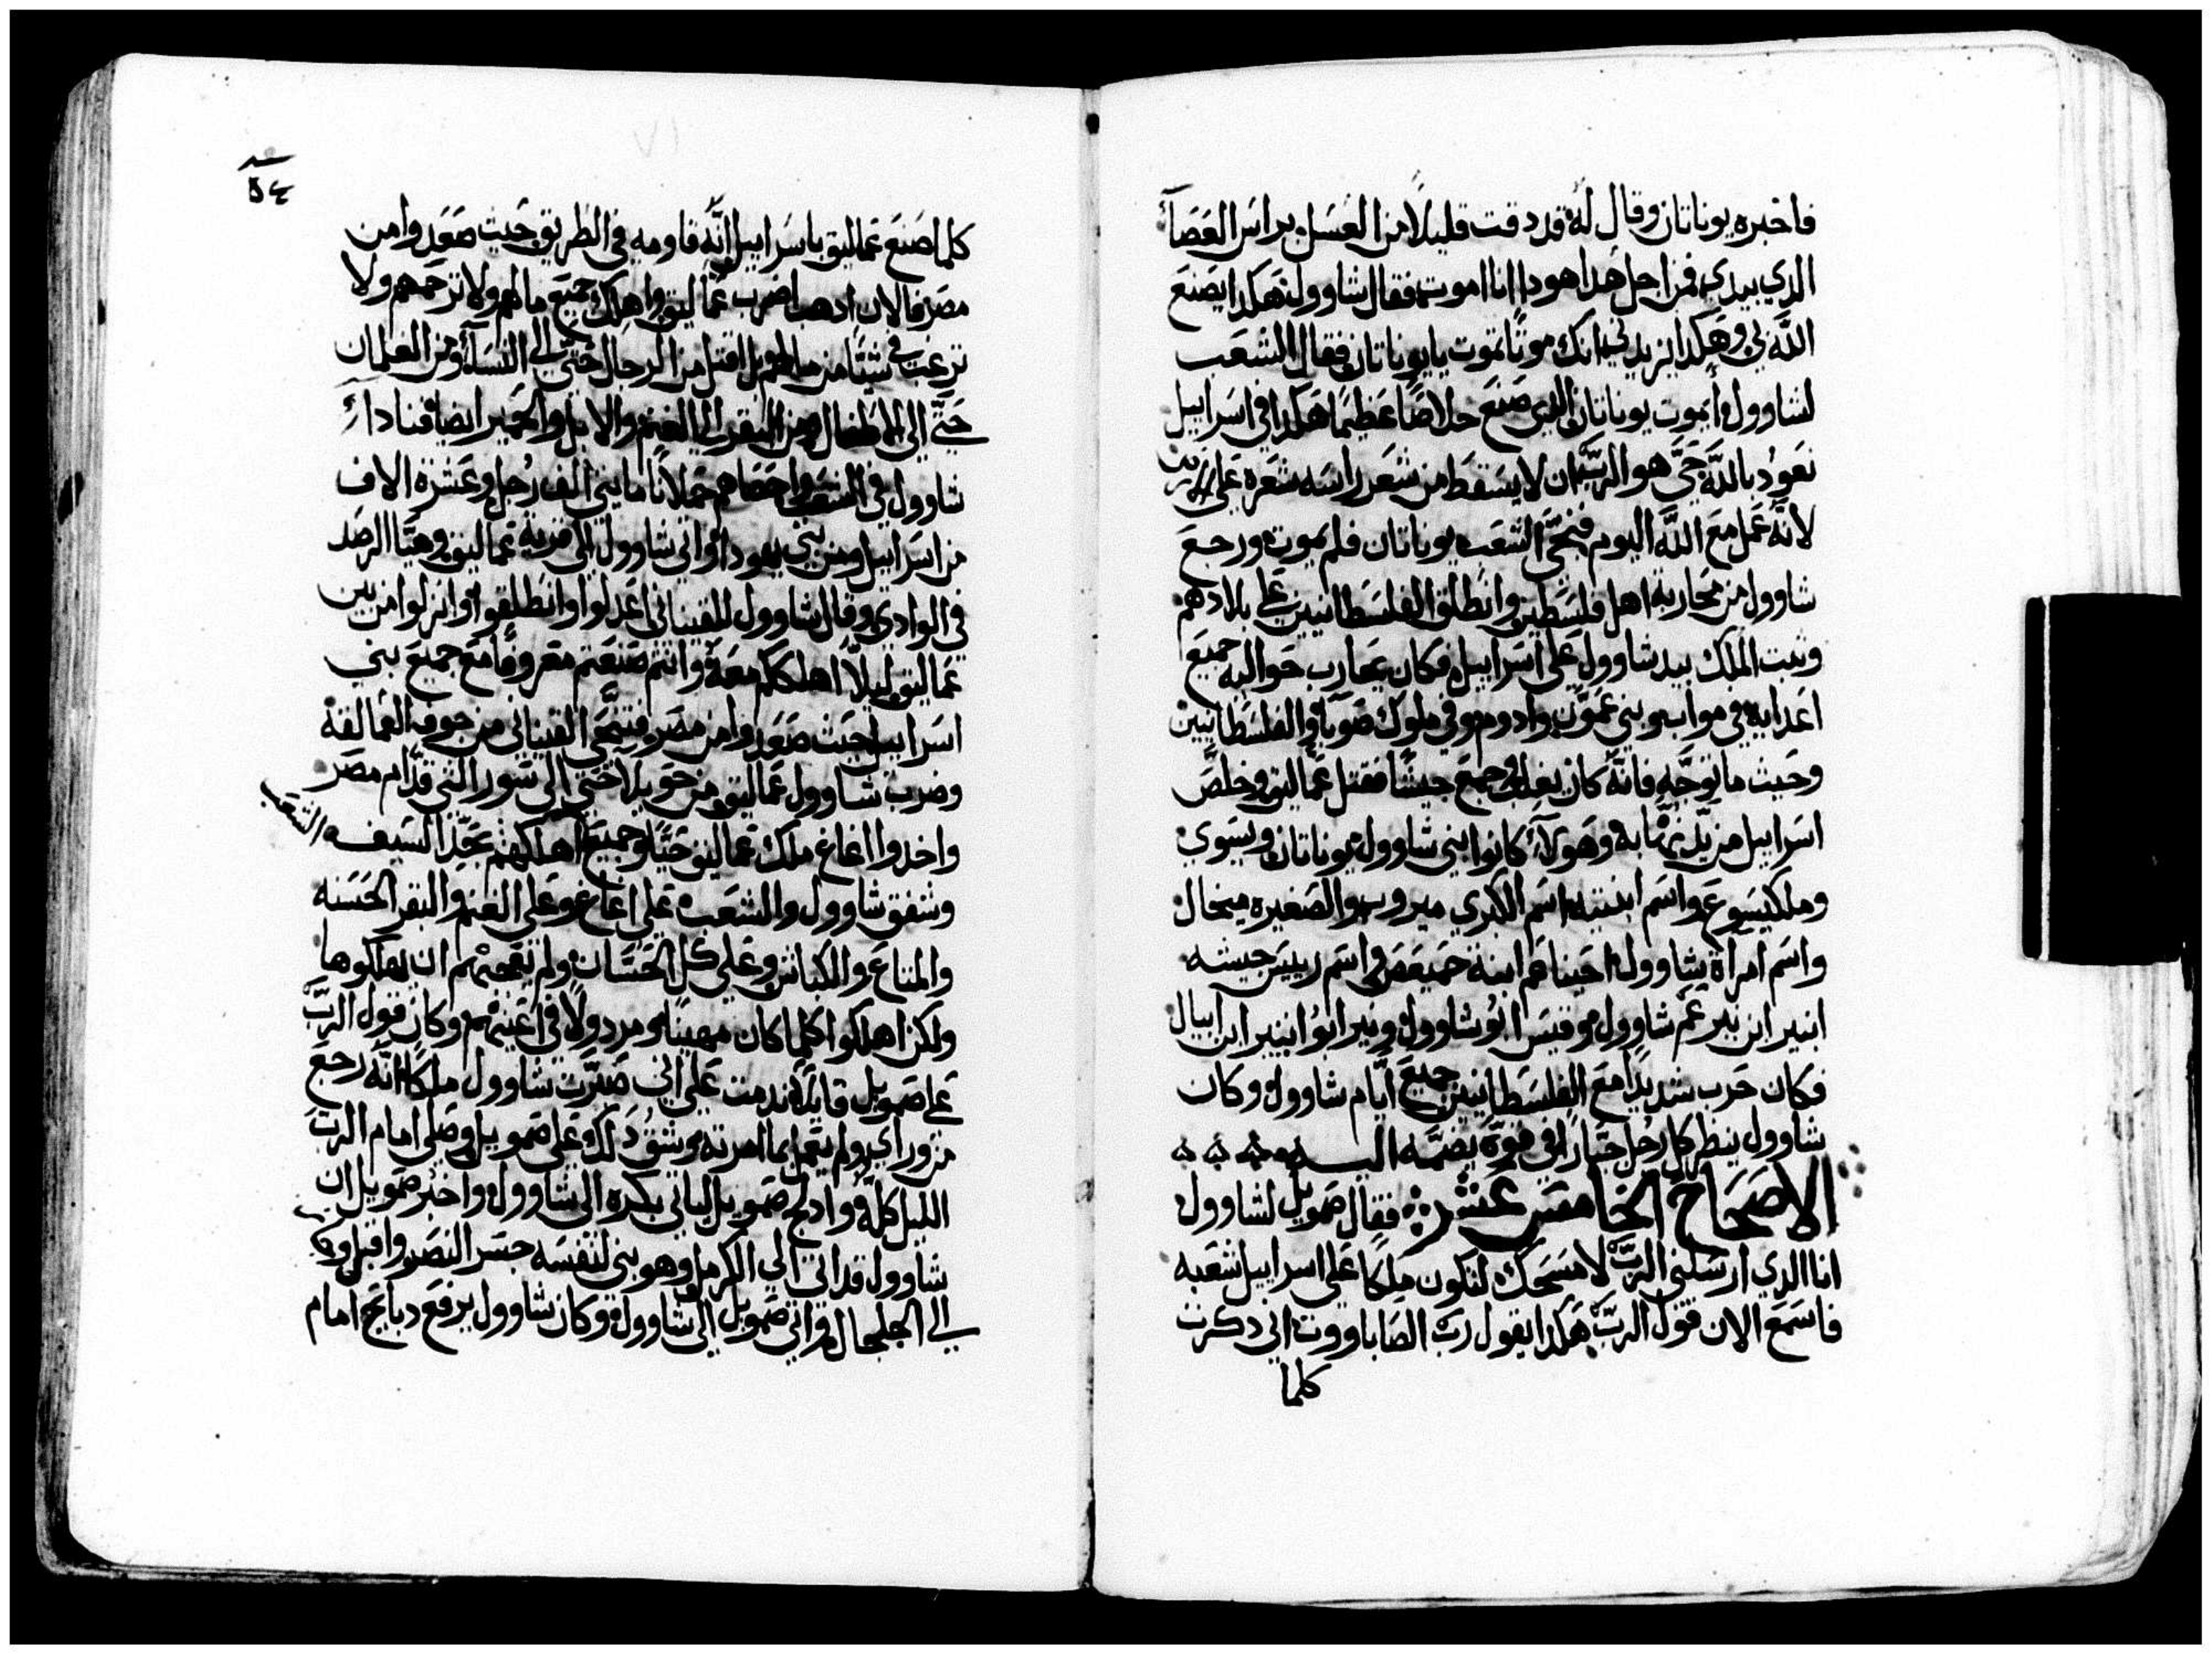 فاخبره يوناتان وقال له قد دقت قليلاً من العسل براس العصاء
الدي بيدي فمن اجل هدا هودا انا اموت فقال شاوول هكدا يصنع
الله بي وهكدا يزيدني انك موتًا تموت يا يوناتان فقال الشعب
لشاوول أيموت يوناتان الدي صنع خلاصًا عظيمًا هكدا في اسراييل
نعود بالله حيَّ هو الربّ ان لا يسقط من شعر راسه شعره على الارض
لانه عمل مع الله اليوم فنجَّى الشعب يوناتان فلم يموت ورجع
شاوول من محاربة اهل فلسطين وانطلق الفلسطانيين على بلادهم
وثبت الملك بيد شاوول على اسراييل فكان يحارب حواليه جميع
اعدايه في مواب وبني عمّون وادوم وفي ملوك صوبا والفلسطانيين
وحيث ما توجّه فانّه كان يغلب وجمع جيشًا فقتل عماليق وخلّص
اسراييل من يدّ نهّابه وهولاء كانوا بني شاوول يوناتان ويسوي
وملكيسوع واسم ابنتيه اسم الكبري ميروب والصغيره ميخال
واسم امراة شاوول احيناعم ابنة حميعص واسم رييس جيشه
ابنير ابن نير عم شاوول وقيس ابو شاوول ونير ابو ابنير ابن ابيال
فكان حرب شديدًا مع الفلسطانيين جميع ايّام شاوول وكان
شاوول ينظر كل رجل جبّارًا في قوة يضمّه اليه
الاصحاح الخامس عشر فقال صمويل لشاوول
انا الدي ارسلني الربّ لامسحك لتكون ملكًا على اسراييل شعبه
فاسمع الان قول الربّ هكدا يقول ربّ الصاباووت اني دكرت
كلما
٥٤
كلما صنع عماليق باسراييل انّه قاومه في الطريق حيث صعد وا من
مصر فالان ادهب اضرب عماليق واهلك جميع ما لهم ولا ترحمهم ولا
ترغب في شيًّا من مالهم بل اقتل من الرجال حتّي الى النساء ومن الغلمان
حتّي الي الاطفال ومن البقر الى الغنم والابل والحمير ايضا فنادا
شاوول في الشعب واحصاهم حملانًا مايتي الف رجل وعشرة الاف
من اسراييل ومن بني يهودا واتى شاوول الى قرية عماليق وهيّا الرصد
في الوادي وقال شاوول للقيناني اعدلوا وانطلقوا وانزلوا من بين
عماليق ليلاّ اهلككم معه وانتم صنعتم معروفًا مع جميع بني
اسراييل حيث صعدوا من مصر فتنحَّى القيناني من جوف العمالقة
وضرب شاوول عماليق من حويلا حتي الى سور التي قدّام مصر
واخدوا اغاغ ملك عماليق حيًّا وجميع الشعب اهلكهم بحدّ السيف
وشفق شاوول والشعب على اغاغ وعلى الغنم والبقر الحسنه
والمتاع والكباش وعلي كل الحسان ولم يعجبهم ان يهلكوها
ولكن اهلكوا كلما كان مهينًا ومردولاً في اعينهم وكان قول الربّ
على صمويل قايلاً ندمت على اني صيّرت شاوول ملكًا انّه رجع
من وراي ولم يعمل بما امرته وشق دلك على صمويل وصلى امام الربّ
الليل كلّه وادلج صمويل لياتي بكره الى شاوول واخبر صمويل ان
شاوول قد اتى الى الكرمل وهو بنى لنفسه جسر النصر واقبل و
الى الجلجال واتى صمويل الى شاوول وكان شاوول يرفع دبايح امام